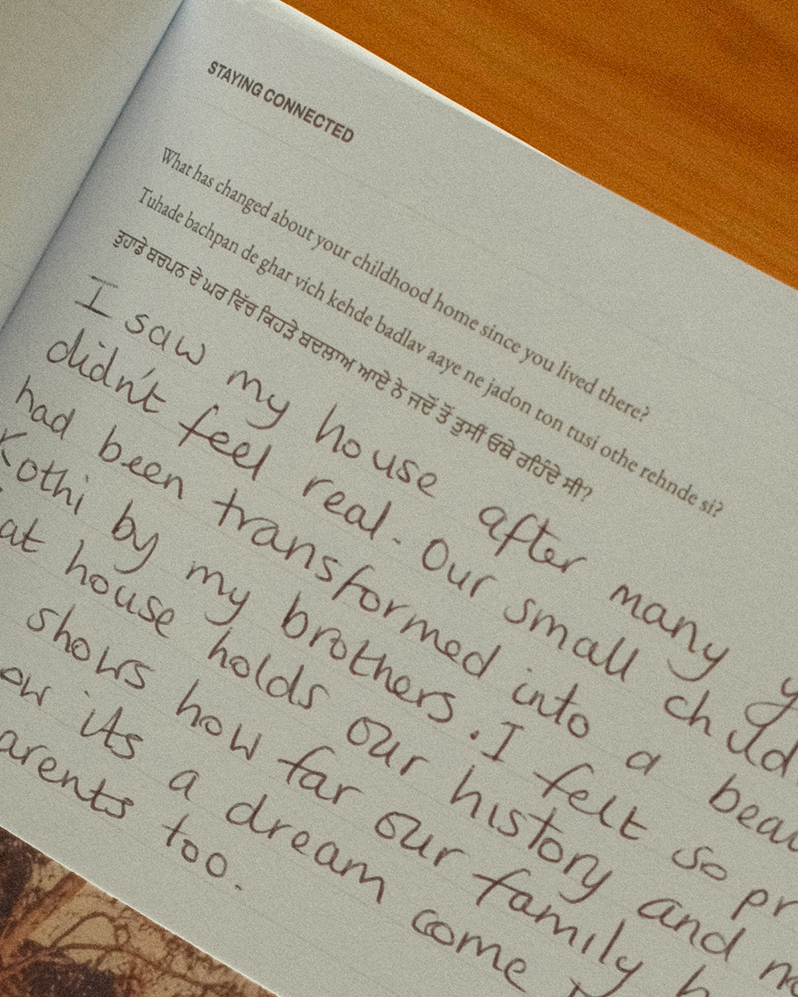 STAYING CONNECTED
What has changed about your childhood home since you lived there?
Tuhade bachpan de ghar vich kehde badlav aaye ne jadon ton tusi othe rehnde si?
ਤੁਹਾਡੇ ਬਚਪਨ ਦੇ ਘਰ ਵਿੱਚ ਕਿਹੜੇ ਬਦਲਾਅ ਆਏ ਨੇ ਜਦੋਂ ਤੋਂ ਤੁਸੀਂ ਓਥੇ ਰਹਿੰਦੇ ਸੀ?
I saw my house after many
didn't feel real. Our small
had been transformed into a
Kothi by my brothers. I felt so
at house holds our history and
shows how far our family
its a dream come
arents too.